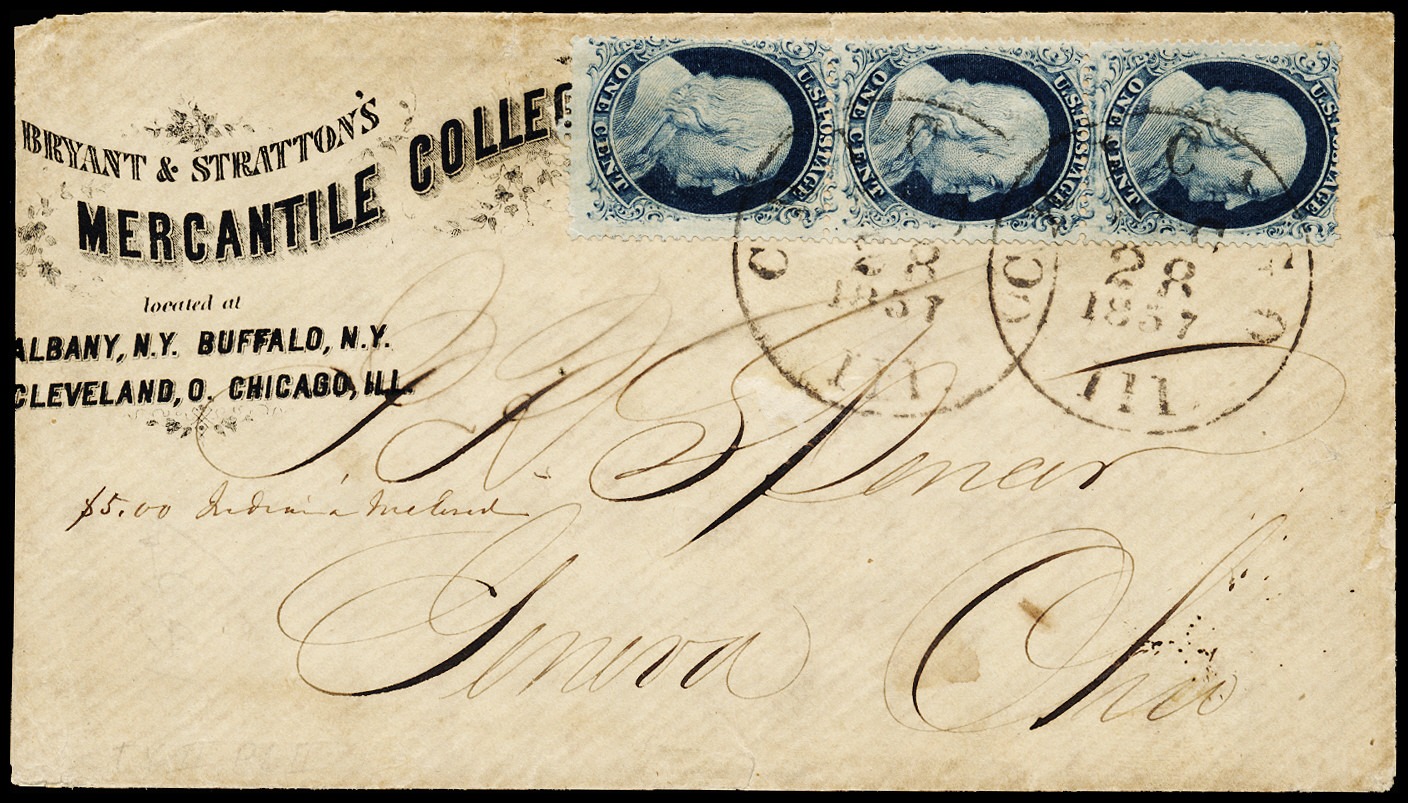 BRYANT & STRATTON'S
MERCANTILE COLLEG
located at
ALBANY, N.Y. BUFFALO, N.Y.
CLEVELAND, O. CHICAGO, ILL.
U.S. POSTAGE
ONE CENT
U.S. POSTAGE
ONE CENT
U.S. POSTAGE
ONE CENT
28
1857
Ill
C
28
1857
Ill
Spencer
$5.00 Indian'a Inclosed
Geneva Ohio